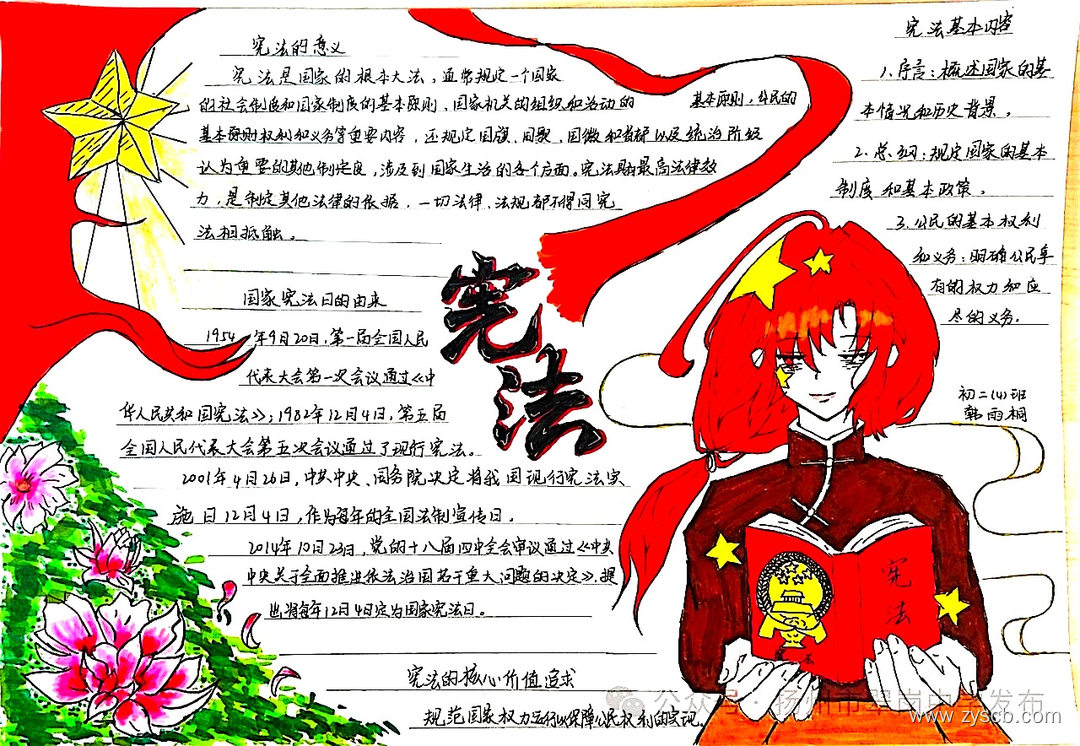 宪法的意义
宪法是国家的根本大法，通常规定一个国家
的社会制度和国家制度的基本原则，国家机关的组织和活动的
基本原则，公民的
基本原则权利和义务等重要内容，还规定国旗、国歌、国徽和首都以及统治阶级
认为重要的其他制度，涉及到国家生活的各个方面。宪法具有最高法律效
力，是制定其他法律的依据，一切法律、法规都不得同宪
法相抵触。
国家宪法日的由来
1954年9月20日，第一届全国人民
代表大会第一次会议通过《中
华人民共和国宪法》；1982年12月4日，第五届
全国人民代表大会第五次会议通过了现行宪法。
2001年4月26日，中共中央、国务院决定将我国现行宪法实
施日12月4日，作为每年的全国法制宣传日。
2014年10月23日，党的十八届四中全会审议通过《中共
中央关于全面推进依法治国若干重大问题的决定》，提
出将每年12月4日定为国家宪法日。
宪法的核心价值追求
规范国家权力运行以保障公民权利的实现。
宪法
宪法基本内容
1.序言：概述国家的基
本情况和历史背景。
2.总纲：规定国家的基本
制度和基本政策。
3.公民的基本权利
和义务：明确公民享
有的权力和应
尽的义务。
初二(4)班
韩雨桐
宪法
公众号·扬州市翠岗中学发布
www.zyscb.com